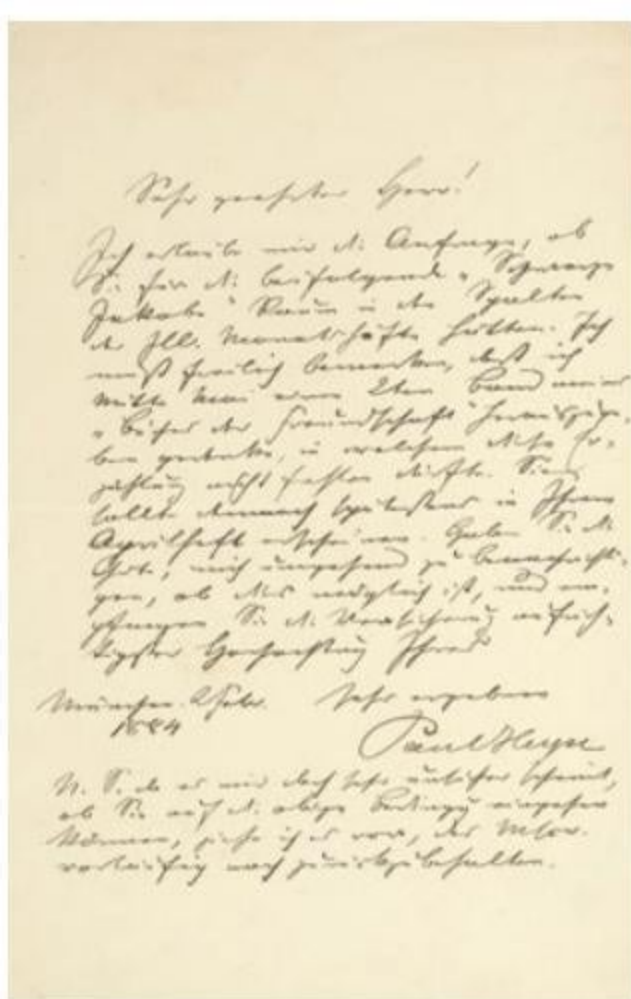 Sehr geehrter Herr!
Ich erlaube mir die Anfrage, ob
Sie für die beifolgende „Schwarze
Jakobe“ Raum in den Spalten
der Ill. Monatshefte hätten. Ich
muß freilich bemerken, daß ich
Mitte Mai einen 2ten Band meines
„Buches der Freundschaft“ herauszuge-
ben gedenke, in welchem diese Er-
zählung nicht fehlen dürfte. Sie
sollte demnach spätestens in Ihrem
Aprilheft erscheinen. Haben Sie die
Güte, mich umgehend zu benachrichti-
gen, ob dies möglich ist, und em-
pfangen Sie die Versicherung aufrich-
tigster Hochachtung Ihres
München. Febr. Sehr ergebenen
1884
Paul Heyse
N. S. da es mir doch sehr unsicher scheint,
ob Sie auf die obige Bedingung eingehen
können, ziehe ich es vor, das Mscr.
vorläufig noch zurückzubehalten.